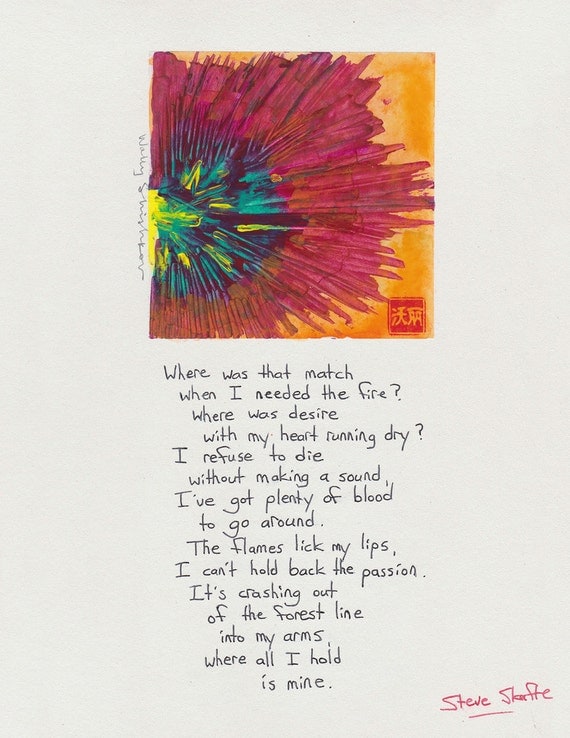 沃丽
Where was that match
when I needed the fire?
where was desire
with my heart running dry?
I refuse to die
without making a sound,
I've got plenty of blood
to go around.
The flames lick my lips,
I can't hold back the passion.
It's crashing out
of the forest line
into my arms,
where all I hold
is mine.
Steve Skafte